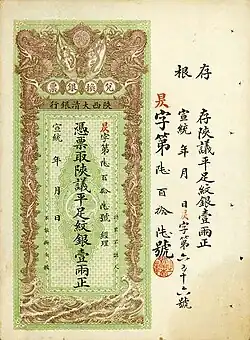 存根
昃字第陸百拾陸號
存陝議平足紋銀壹兩正
宣統 年 月 日昃字第六百十六號
兌換銀票
陝西大清銀行
昃字第陸百拾陸號 經理
憑票取陝議平足紋銀壹兩正
宣統 年 月 日